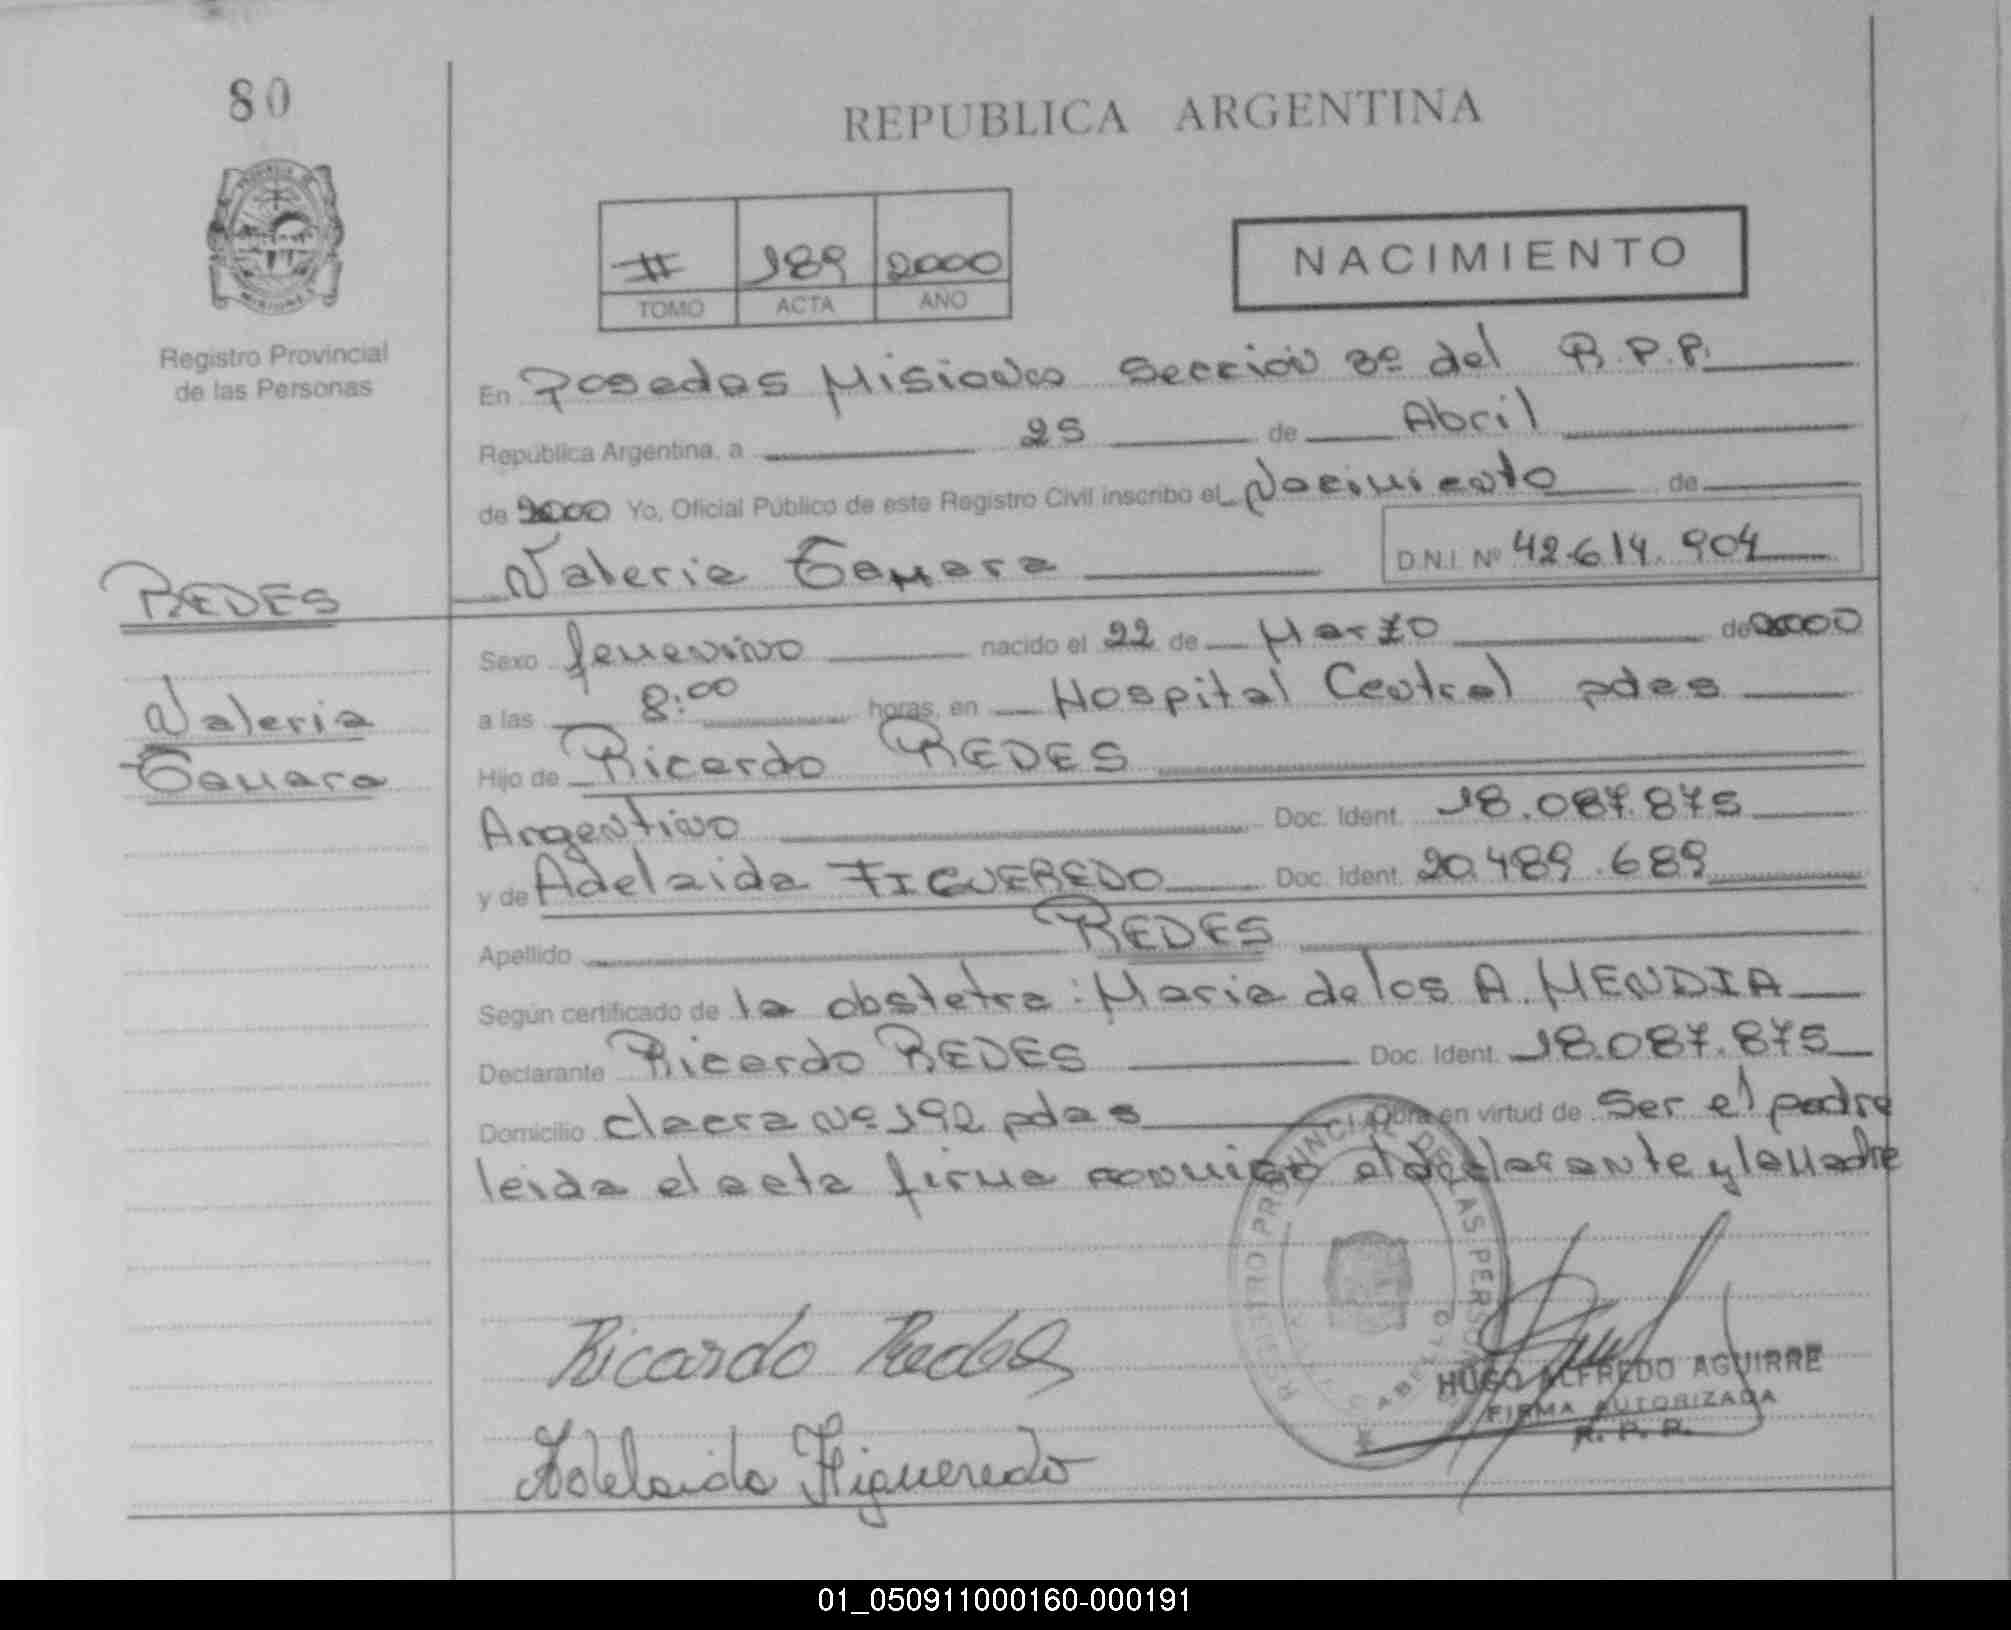 80
REPUBLICA ARGENTINA
II 189 2000
TOMO ACTA AÑO
NACIMIENTO
Registro Provincial
de las Personas
En Posadas Misiones Sección 3º del R.P.P.
República Argentina, a 25 de Abril
de 2000 Yo, Oficial Público de este Registro Civil inscribo el Nacimiento de
Valeria Tamara D.N.I. Nº 42.614.904
REDES
Valeria
Tamara
Sexo femenino nacido el 22 de Marzo de 2000
a las 8:00 horas, en Hospital Central pdas
Hijo de Ricardo REDES
Argentino Doc. Ident. 18.087.875
y de Adelaida FIGUEREDO Doc. Ident. 20.489.689
Apellido REDES
Según certificado de la obstetra: Maria de los A. MENDIA
Declarante Ricardo REDES Doc. Ident. 18.087.875
Domicilio chacra Nº 192 pdas Obra en virtud de Ser el padre
leida el acta firma conmigo el declarante y la Madre
REGISTRO PROVINCIAL DE LAS PERSONAS
Ricardo Redes
HUGO ALFREDO AGUIRRE
FIRMA AUTORIZADA
R. P. P.
Adelaida Figueredo
01_050911000160-000191